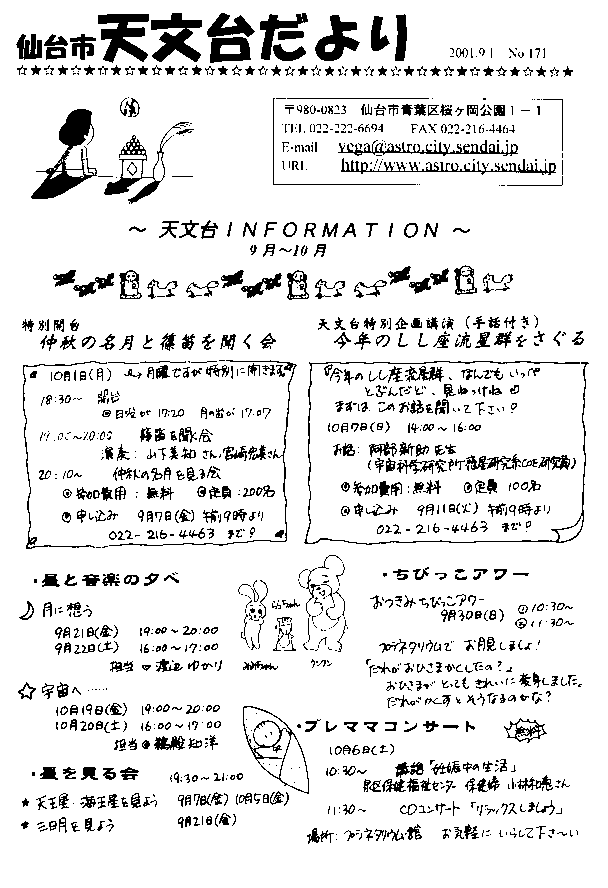 仙台市 天文台だより 2001.9.1 No 171
〒980-0823 仙台市青葉区桜ヶ岡公園1-1
TEL 022-222-6694 FAX 022-216-4464
E-mail vega@astro.city.sendai.jp
URL http://www.astro.city.sendai.jp
～ 天文台INFORMATION ～
9月～10月
特別開台
仲秋の名月と篠笛を聞く会
10月1日(月) 月曜ですが特別に開きます
18:30～ 開台
◎日没が 17:20 月の出が 17:07
19:00～20:00 篠笛を聞く会
演奏: 山下美知さん,宮崎さん
20:10～ 仲秋の名月を見る会
◎参加費用:無料 ◎定員:200名
◎申し込み 9月7日(金)午前9時より
022-216-4463 まで!
天文台特別企画講演(手話付き)
今年のしし座流星群をさぐる
今年のしし座流星群、なんでもいっぺ
とぶんだど、見ねっけね
まずは、このお話を聞いて下さい!
10月7日(日) 14:00～16:00
お話: 阿部新助先生
(宇宙科学研究所惑星研究系COE研究員)
◎参加費用:無料 ◎定員 100名
◎申し込み 9月11日(火) 午前9時より
022-216-4463 まで!
・星と音楽の夕べ
月に想う
9月21日(金) 19:00～20:00
9月22日(土) 16:00～17:00
担当 渡辺ゆかり
☆宇宙へ……
10月19日(金) 19:00～20:00
10月20日(土) 16:00～17:00
担当 和洋
・星を見る会 19:30～21:00
★天王星・海王星を見よう 9月7日(金) 10月5日(金)
★三日月を見よう 9月21日(金)
・ちびっこアワー
おつきみちびっこアワー
9月30日(日) ①10:30～
②11:30～
プラネタリウムで お月見しましょ!
「だれがおひさまかくしたの?」
おひさまが とっても きれいに変身しました。
だれがかくすと そうなるのかな?
・プレママコンサート 無料
10月6日(土)
10:30～ 講話「妊娠中の生活」
泉区保健福祉センター 保健婦 小林和恵さん
11:30～ CDコンサート「リラックスしましょう」
場所: プラネタリウム館 お気軽に いらして下さ～い